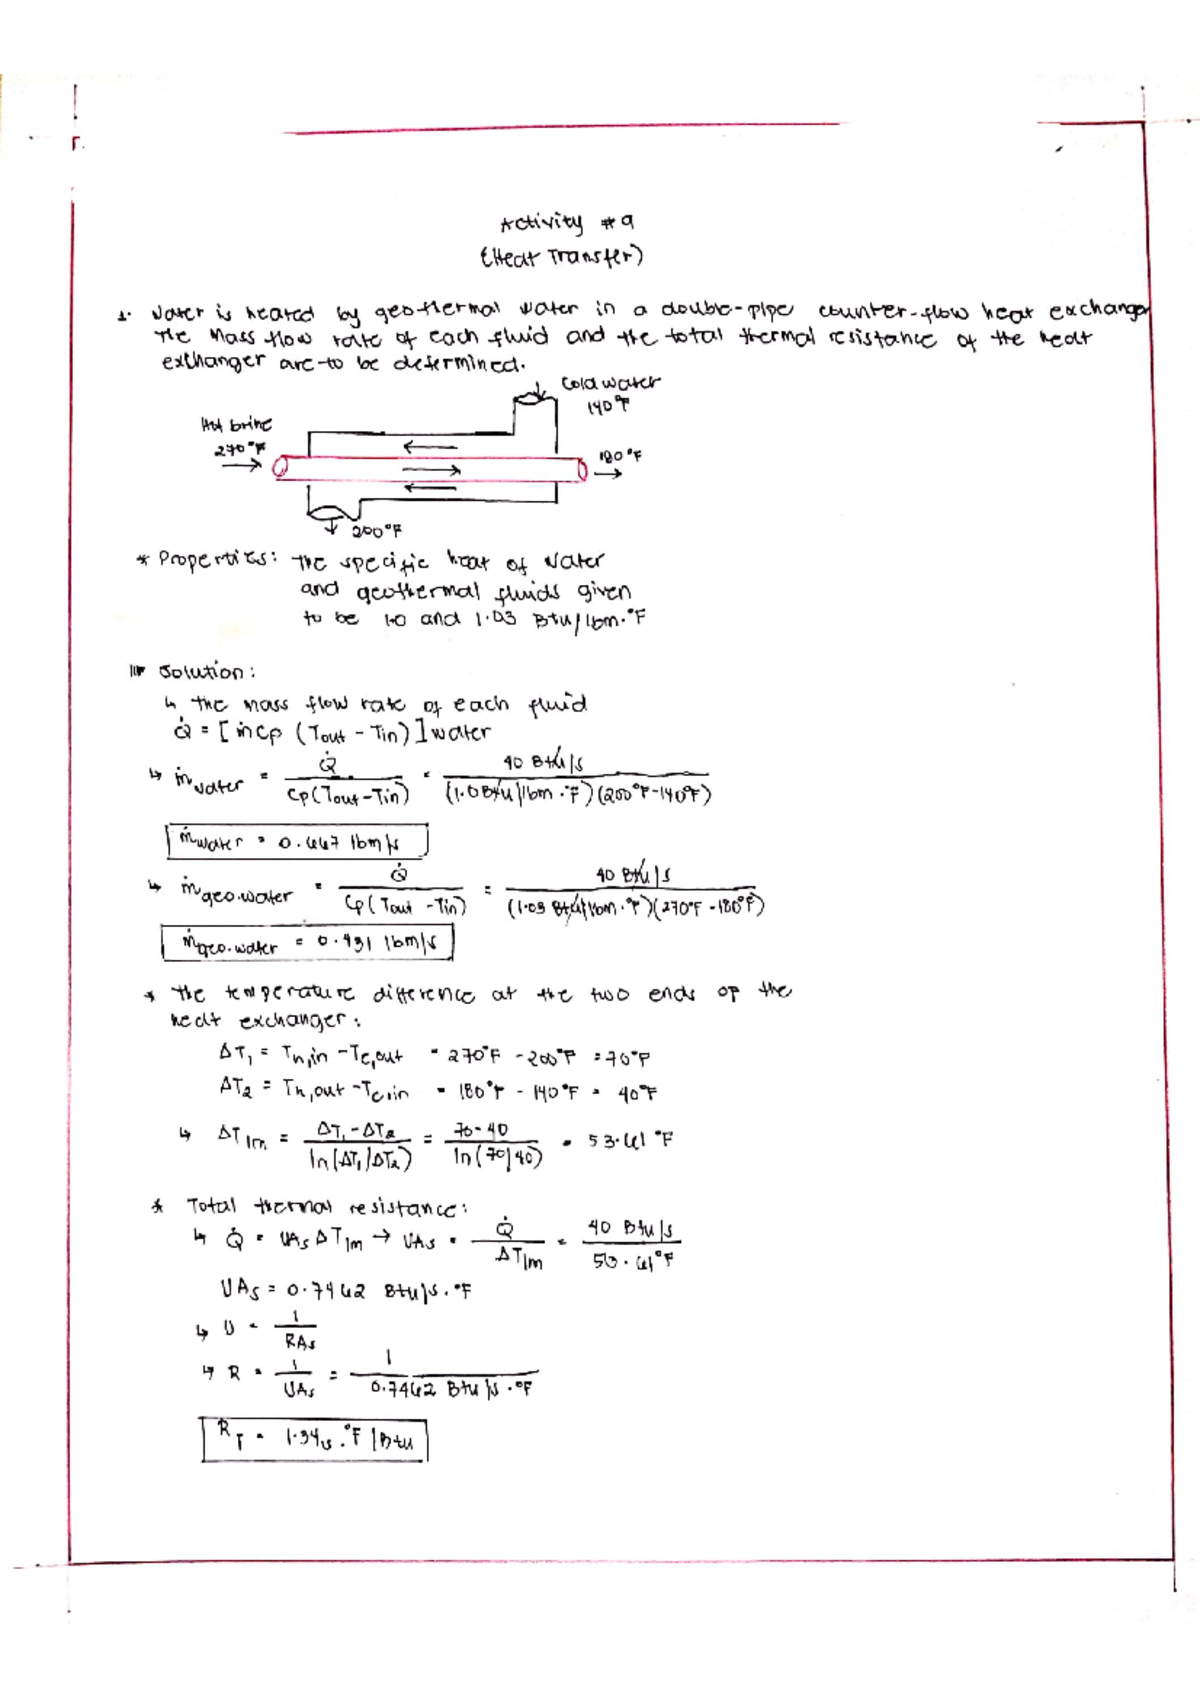 Activity #9
(Heat Transfer)
1. Water is heated by geothermal water in a double-pipe counter-flow heat exchanger
The Mass flow rate of each fluid and the total thermal resistance of the heat
exchanger are to be determined.
Cold water
140°F
Hot brine
270°F
180°F
200°F
* Properties: The specific heat of water
and geothermal fluids given
to be 1.0 and 1.03 Btu/lbm.°F
Solution:
↳ The mass flow rate of each fluid
Q̇ = [ṁcp (Tout - Tin)]water
↳ ṁwater = Q̇ / Cp(Tout-Tin) = 40 Btu/s / (1.0 Btu/lbm.°F)(200°F-140°F)
ṁwater = 0.667 lbm/s
↳ ṁgeo.water = Q̇ / Cp(Tout-Tin) = 40 Btu/s / (1.03 Btu/lbm.°F)(270°F-180°F)
ṁgeo.water = 0.431 lbm/s
* The temperature difference at the two ends of the
heat exchanger:
ΔT1 = Th,in - Tc,out = 270°F - 200°F = 70°F
ΔT2 = Th,out - Tc,in = 180°F - 140°F = 40°F
↳ ΔTlm = ΔT1-ΔT2 / ln(ΔT1/ΔT2) = 70-40 / ln(70/40) = 53.61°F
* Total thermal resistance:
↳ Q̇ = UAs ΔTlm → UAs = Q̇ / ΔTlm = 40 Btu/s / 53.61°F
UAs = 0.7462 Btu/s.°F
↳ U = 1 / RAs
↳ R = 1 / UAs = 1 / 0.7462 Btu/s.°F
RT = 1.34s.°F/Btu